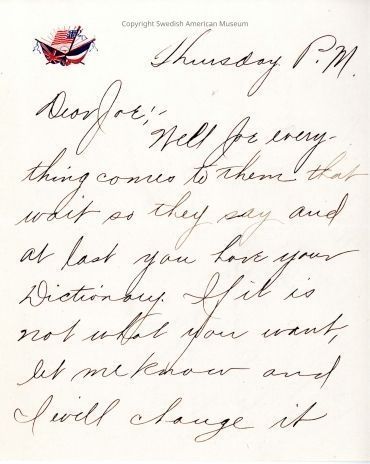 Copyright Swedish American Museum
Thursday P.M.
Dear Joe;-
Well Joe every-
thing comes to them that
wait so they say and
at last you have your
Dictionary. If it is
not what you want,
let me know and
I will change it